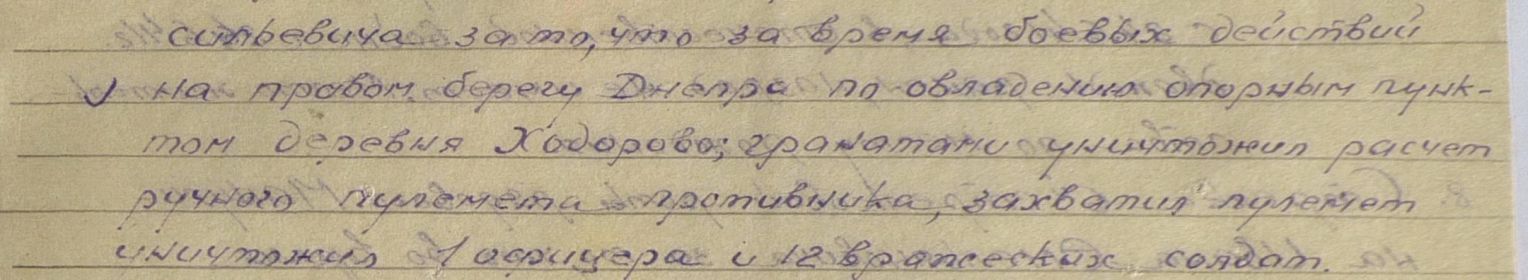 сильевича за то, что за время боевых действий
на правом берегу Днепра по овладению опорным пунк-
том деревня Ходорово; гранатами уничтожил расчет
ручного пулемета противника, захватил пулемет
уничтожил 1 офицера и 12 вражеских солдат.